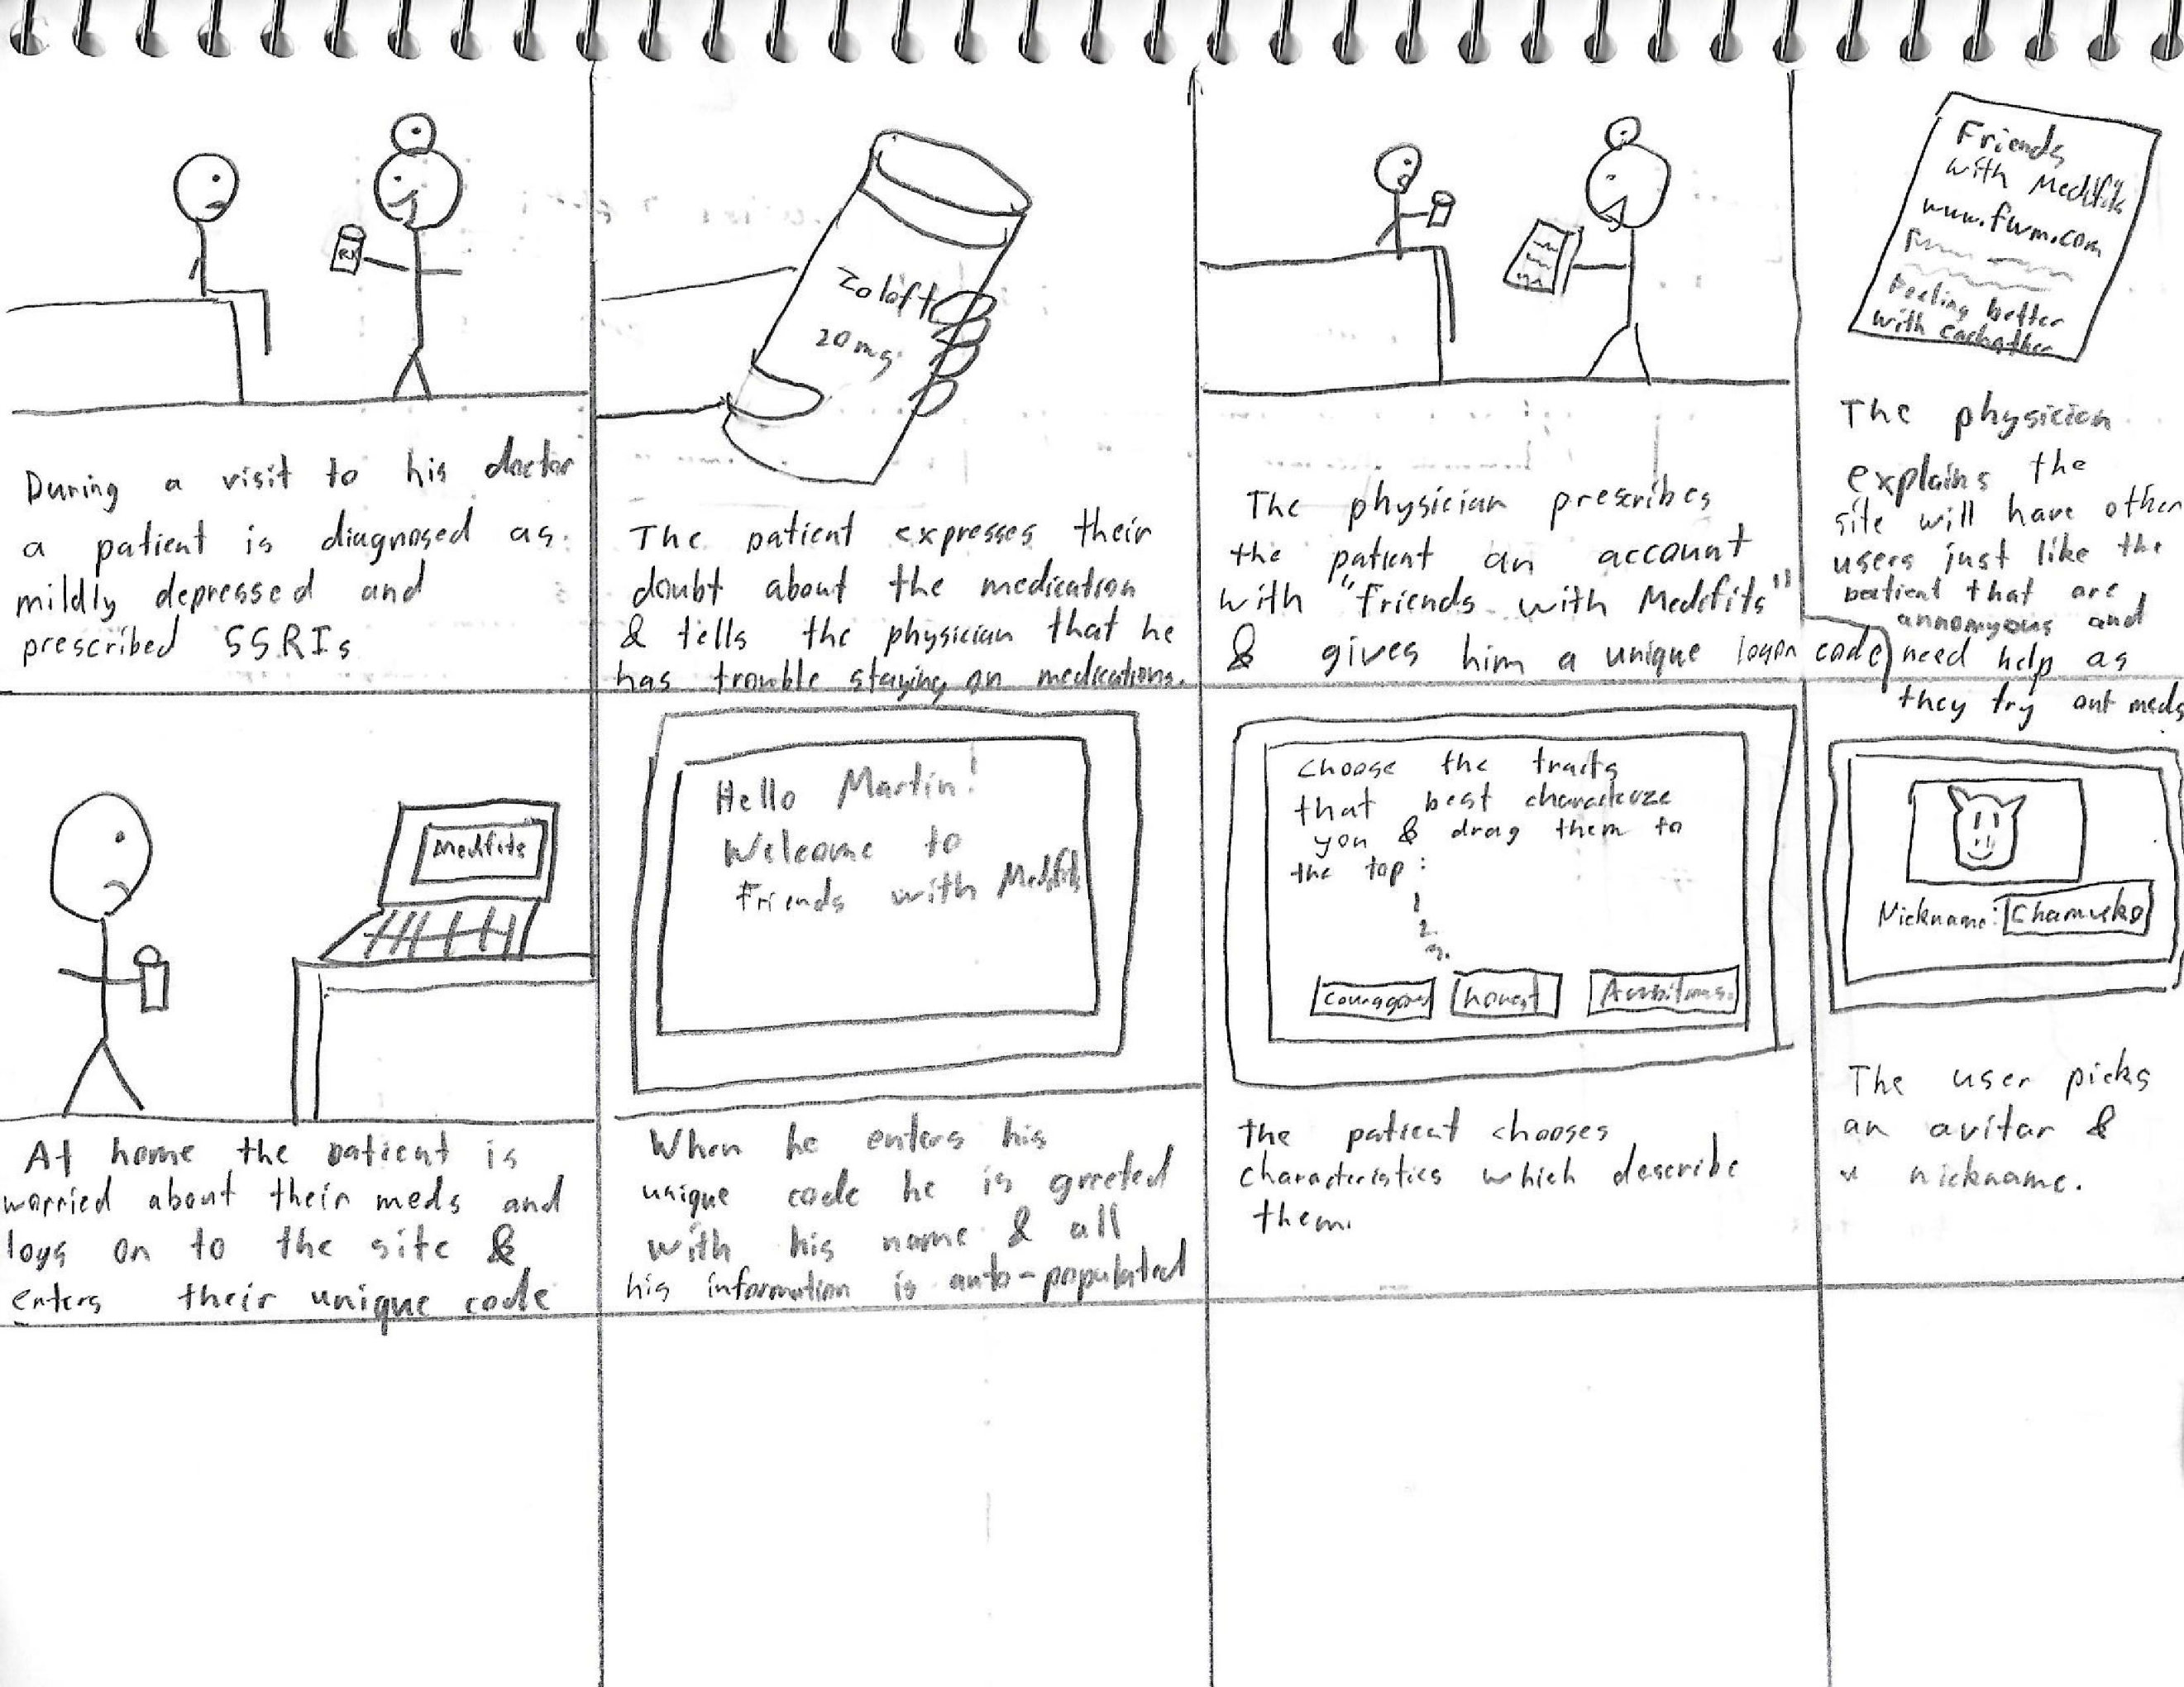 RX
During a visit to his doctor
a patient is diagnosed as
mildly depressed and
prescribed SSRIs
Zoloft
20mg
The patient expresses their
doubt about the medication
& tells the physician that he
has trouble staying on medications.
The physician prescribes
the patient an account
with "friends with Medefits"
& gives him a unique logon code
Friends
with Medifits
www.fwm.com
Feeling better
with eachother
The physician
explains the
site will have other
users just like the
patient that are
annomyous and
need help as
they try out meds
Medifits
At home the patient is
worried about their meds and
logs on to the site &
enters their unique code
Hello Martin!
Welcome to
Friends with Medifits
When he enters his
unique code he is greeted
with his name & all
his information is auto-populated
Choose the traits
that best characterize
you & drag them to
the top:
1
2.
3.
Courageous honest Ambitious
the patient chooses
characteristics which describe
them.
Nickname: Chamucko
The user picks
an avitar &
a nickname.